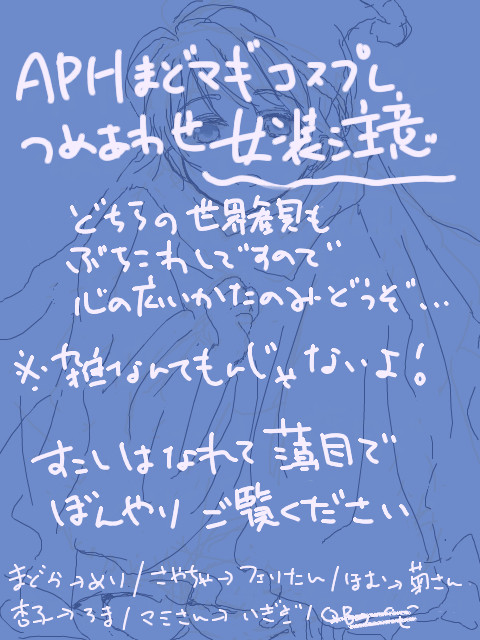 APHまどマギコスプレ
つめあわせ 女装注意
どちらの世界観も
ぶちこわしですので
心の広いかたのみどうぞ…
※雑なんてもんじゃないよ!
すこしはなれて薄目で
ぼんやりご覧ください
まどか→めり/さやちゃ→フェリたん/ほむ→菊さん
杏子→ろま/マミさん→いぎぎ/